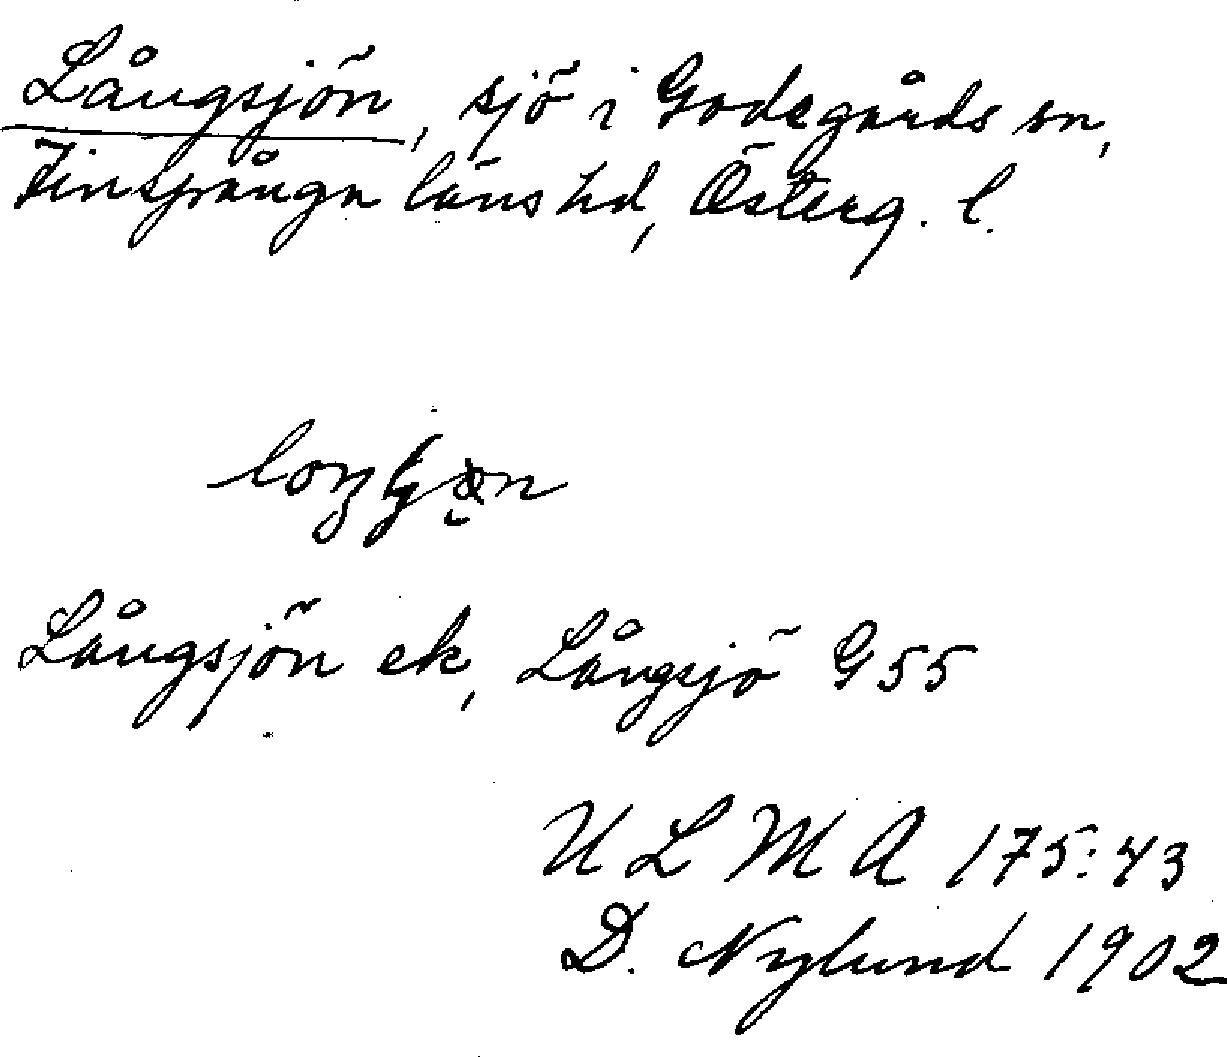 Långsjön, sjö i Godegårds sn,
Finspånga läns hd, Österg. l.
Långsjön ek, Långsjö G 55
ULMA 175:43
D. Nylund 1902